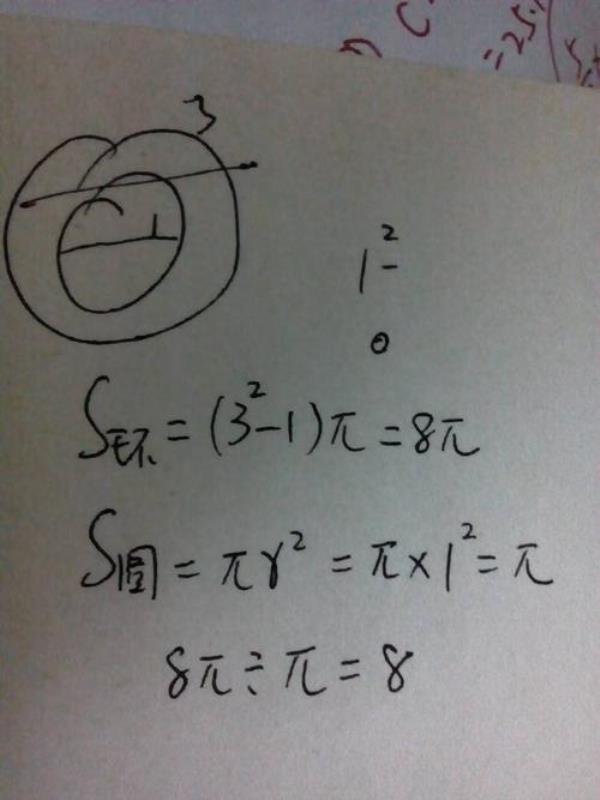 3
1
1²-
0
S环=(3²-1)π=8π
S圆=πr²=π×1²=π
8π÷π=8